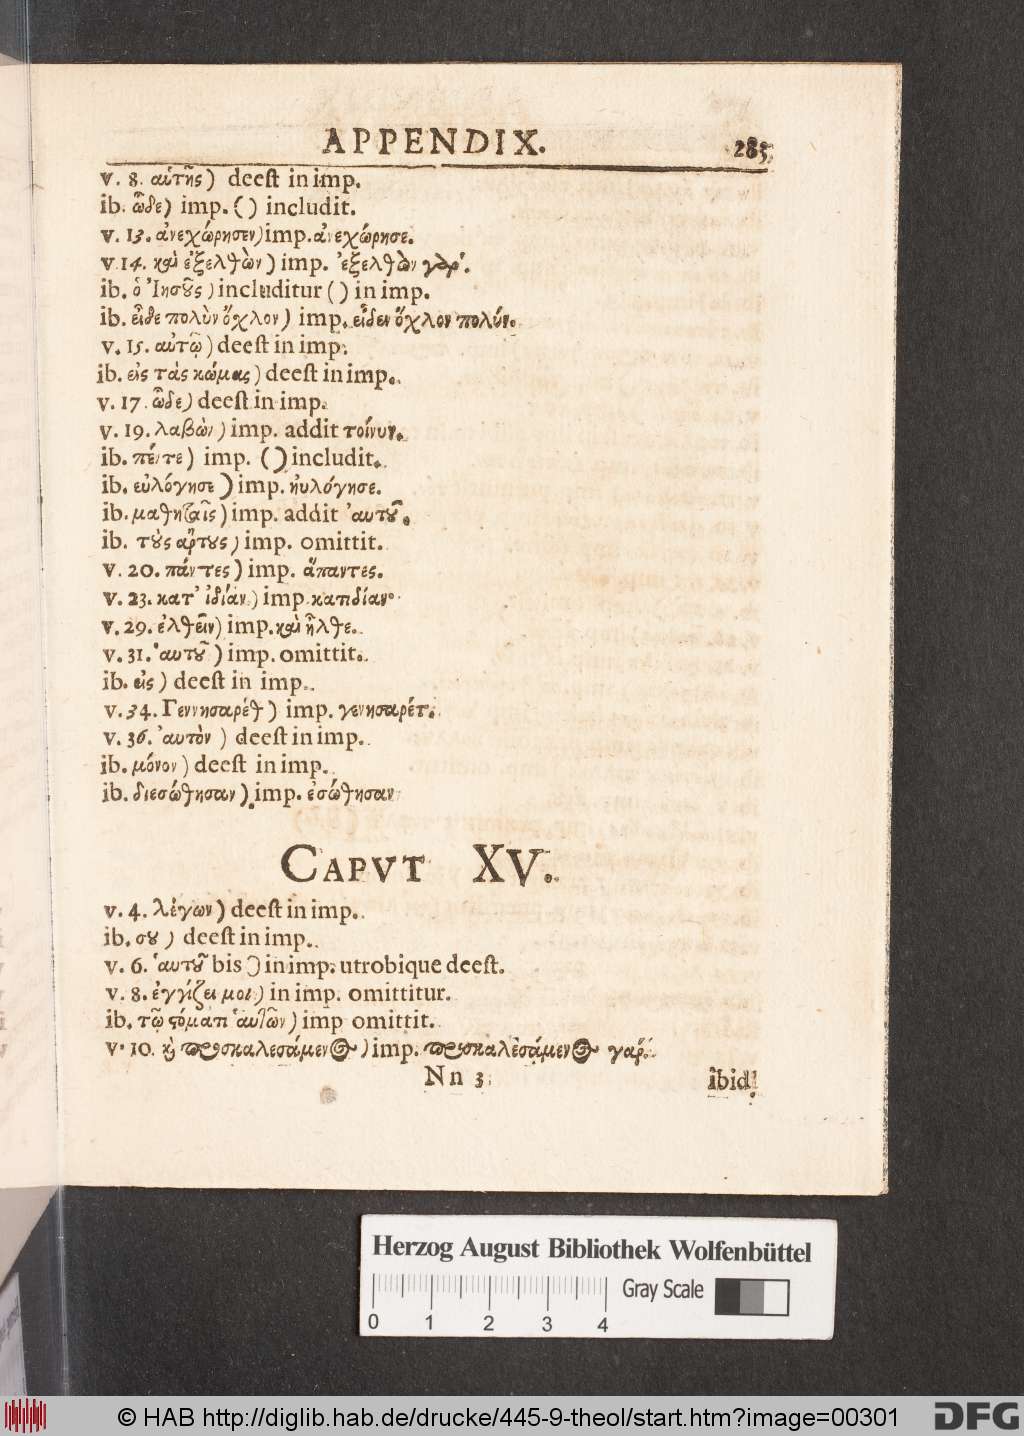 APPENDIX. 285
v. 8. αὐτῆς) deest in imp.
ib. ὧδε) imp. () includit.
v. 13. ἀνεχώρησεν) imp. ἀνεχώρησε.
v. 14. καὶ ἐξελθὼν) imp. ἐξελθὼν γὰρ.
ib. ὁ Ἰησοῦς) includitur () in imp.
ib. εἶδε πολὺν ὄχλον) imp. εἶδεν ὄχλον πολύν.
v. 15. αὐτῷ) deest in imp.
ib. εἰς τὰς κώμας) deest in imp.
v. 17. ὧδε) deest in imp.
v. 19. λαβὼν) imp. addit τοίνυν.
ib. πέντε) imp. () includit.
ib. εὐλόγησε) imp. ηὐλόγησε.
ib. μαθηταῖς) imp. addit αὐτοῦ.
ib. τοὺς ἄρτους) imp. omittit.
v. 20. πάντες) imp. ἅπαντες.
v. 23. κατ' ἰδίαν) imp. κατιδίαν.
v. 29. ἐλθεῖν) imp. καὶ ἦλθε.
v. 31. αὐτοῦ) imp. omittit.
ib. εἰς) deest in imp.
v. 34. Γεννησαρέθ) imp. γενησαρέτ.
v. 36. αὐτὸν) deest in imp.
ib. μόνον) deest in imp.
ib. διεσώθησαν) imp. ἐσώθησαν
CAPVT XV.
v. 4. λέγων) deest in imp.
ib. σου) deest in imp.
v. 6. αὐτοῦ bis) in imp. utrobique deest.
v. 8. ἐγγίζει μοι) in imp. omittitur.
ib. τῷ στόματι αὐτῶν) imp omittit.
v. 10. καὶ προσκαλεσάμενος) imp. προσκαλεσάμενος γάρ.
Nn 3 ibid.
Herzog August Bibliothek Wolfenbüttel
Gray Scale
0 1 2 3 4
© HAB http://diglib.hab.de/drucke/445-9-theol/start.htm?image=00301
DFG